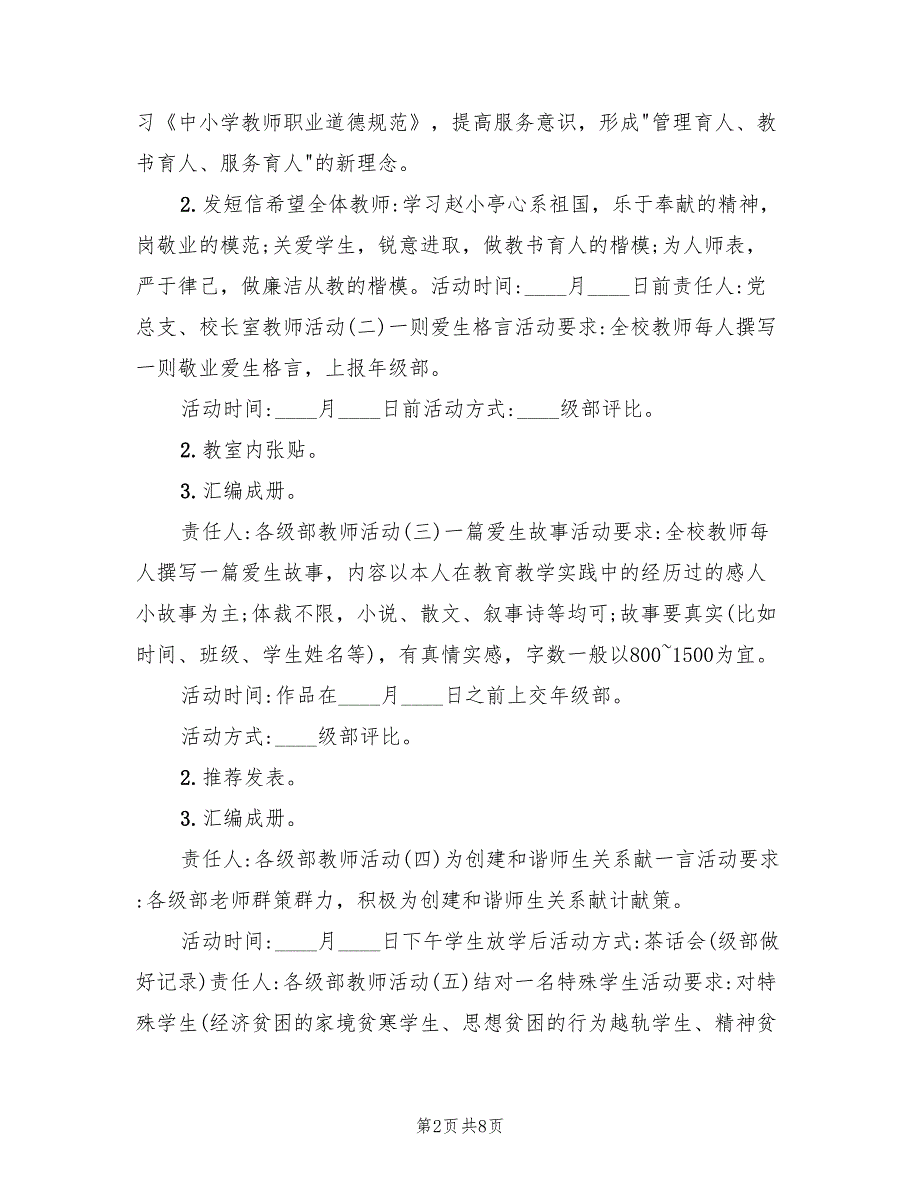 习《中小学教师职业道德规范》，提高服务意识，形成"管理育人、教
书育人、服务育人"的新理念。
2. 发短信希望全体教师:学习赵小亭心系祖国，乐于奉献的精神，
岗敬业的模范;关爱学生，锐意进取，做教书育人的楷模;为人师表，
严于律己，做廉洁从教的楷模。活动时间:____月____日前责任人:党
总支、校长室教师活动(二)一则爱生格言活动要求:全校教师每人撰写
一则敬业爱生格言，上报年级部。
活动时间:____月____日前活动方式:____级部评比。
2. 教室内张贴。
3. 汇编成册。
责任人:各级部教师活动(三)一篇爱生故事活动要求:全校教师每
人撰写一篇爱生故事，内容以本人在教育教学实践中的经历过的感人
小故事为主;体裁不限，小说、散文、叙事诗等均可;故事要真实(比如
时间、班级、学生姓名等)，有真情实感，字数一般以800~1500为宜。
活动时间:作品在____月____日之前上交年级部。
活动方式:____级部评比。
2. 推荐发表。
3. 汇编成册。
责任人:各级部教师活动(四)为创建和谐师生关系献一言活动要求
:各级部老师群策群力，积极为创建和谐师生关系献计献策。
活动时间:____月____日下午学生放学后活动方式:茶话会(级部做
好记录)责任人:各级部教师活动(五)结对一名特殊学生活动要求:对特
殊学生(经济贫困的家境贫寒学生、思想贫困的行为越轨学生、精神贫
第2页 共8页